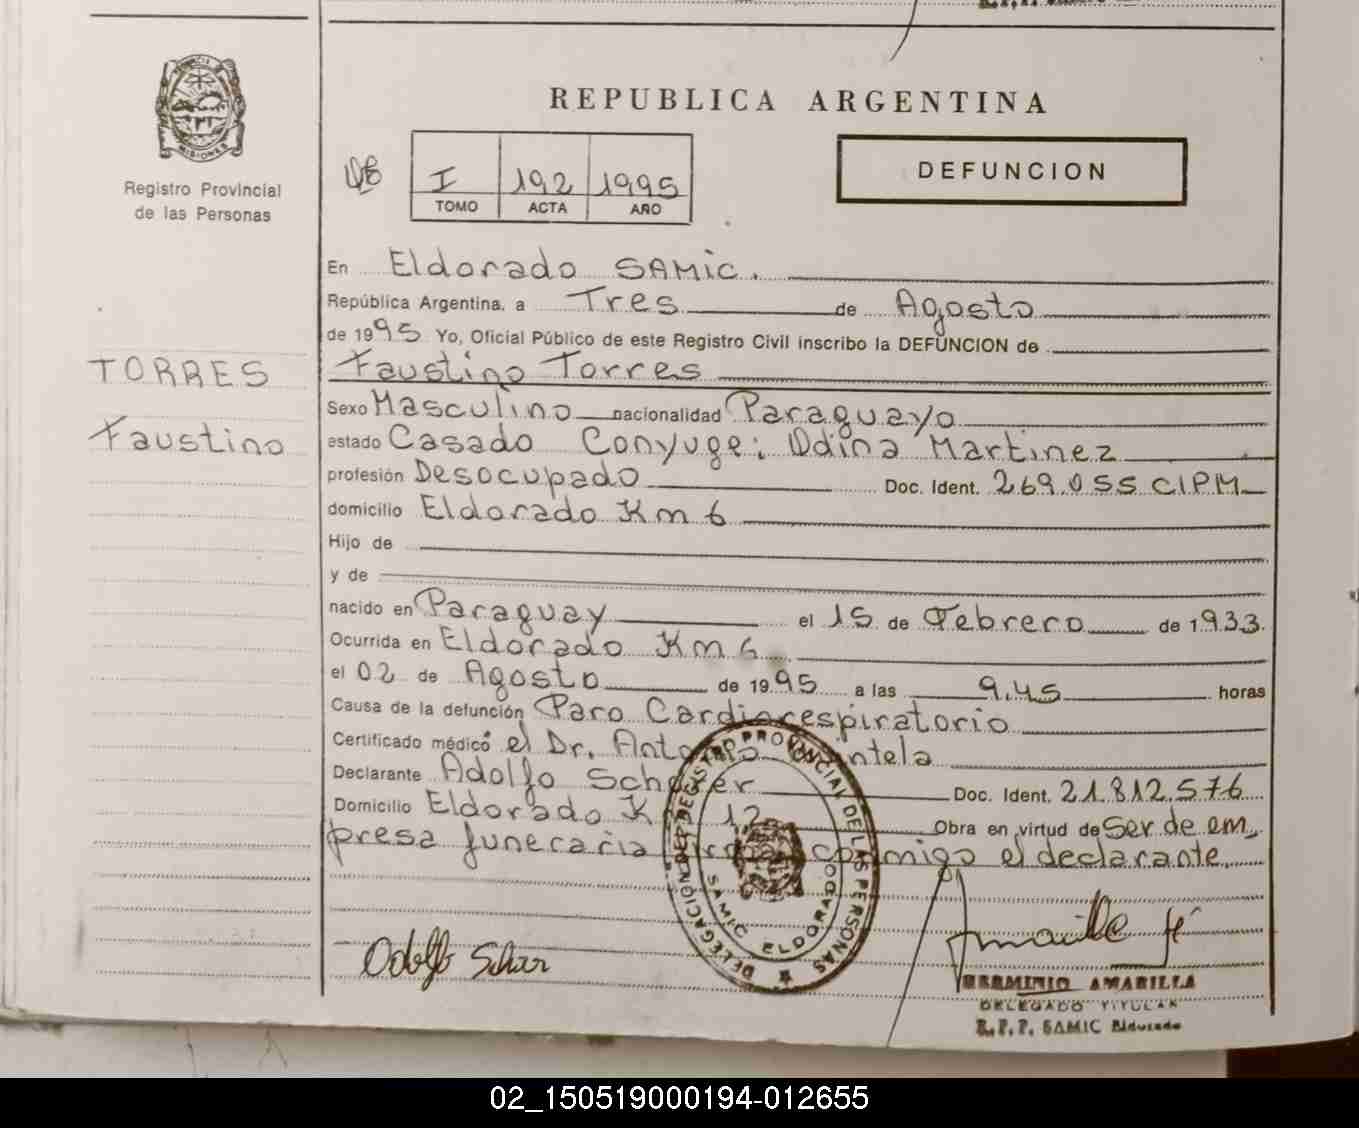 REPUBLICA ARGENTINA
PROVINCIA
MISIONES
Registro Provincial
de las Personas
I 192 1995
TOMO ACTA AÑO
DEFUNCION
En Eldorado SAMIC.
República Argentina, a Tres de Agosto
de 1995 Yo, Oficial Público de este Registro Civil inscribo la DEFUNCION de
TORRES
Faustino
Faustino Torres
Sexo Masculino nacionalidad Paraguayo
estado Casado Conyuge: Odina Martinez
profesión Desocupado Doc. Ident. 269.055 CIPM
domicilio Eldorado Km 6
Hijo de
y de
nacido en Paraguay el 15 de Febrero de 1933.
Ocurrida en Eldorado Km 6
el 02 de Agosto de 1995 a las 9,45 horas
Causa de la defunción Paro Cardiorespiratorio
Certificado médico el Dr.
Declarante Adolfo
Doc. Ident. 21.812.576
Domicilio Eldorado Km 12 Obra en virtud de Ser de em
presa funeraria conmigo el declarante
DELEGACION DEL REGISTRO PROVINCIAL DE LAS PERSONAS
SAMIC ELDORADO
HERMINIO AMARILLA
DELEGADO TITULAR
R.P.P. SAMIC Eldorado
02_150519000194-012655